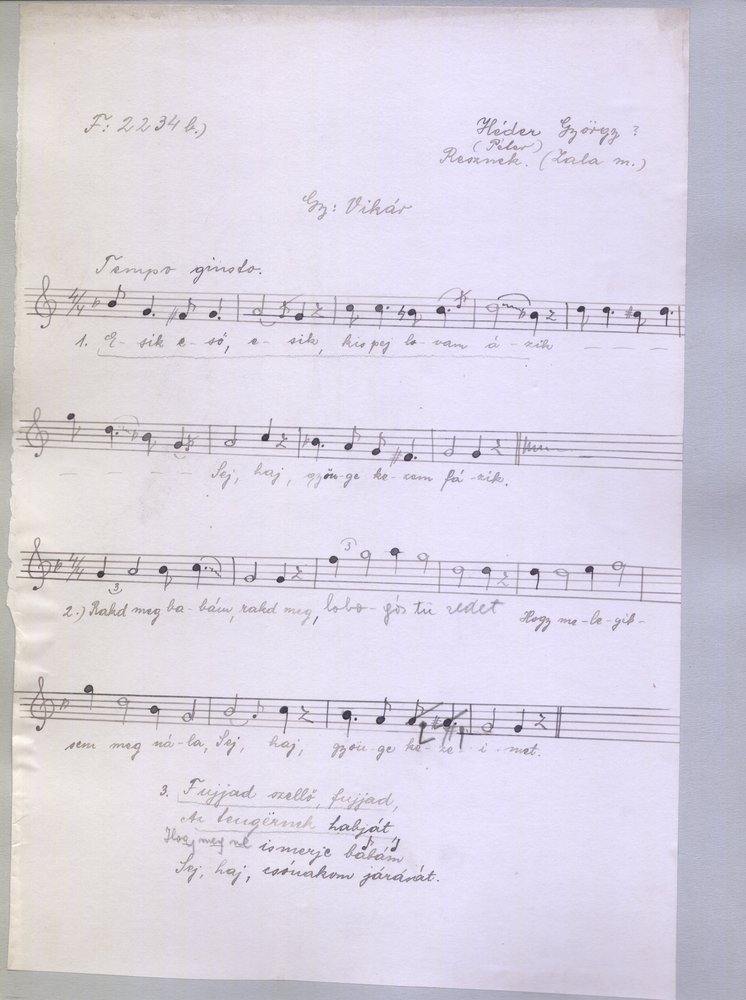 F: 2234 b.)
Héder György ?
(Péter)
Resznek. (Zala m.)
Gy: Vikár
Tempo giusto.
4/4
1. E- sik e- ső, e- sik, kis pej lo- vam á- zik
Sej, haj, gyön-ge ke-zem fá-zik.
4/4
3
3
2.) Rakd meg ba-bám, rakd meg, lobo-gós tü zedet Hogy me-le-gít-
sem meg ná-la, Sej, haj, gyön-ge ke-ze-i-met.
3. Fujjad szellő, fujjad,
Az tengërnek habját
Hogy meg ne ismerje babám
Sej, haj, csónakom járását.